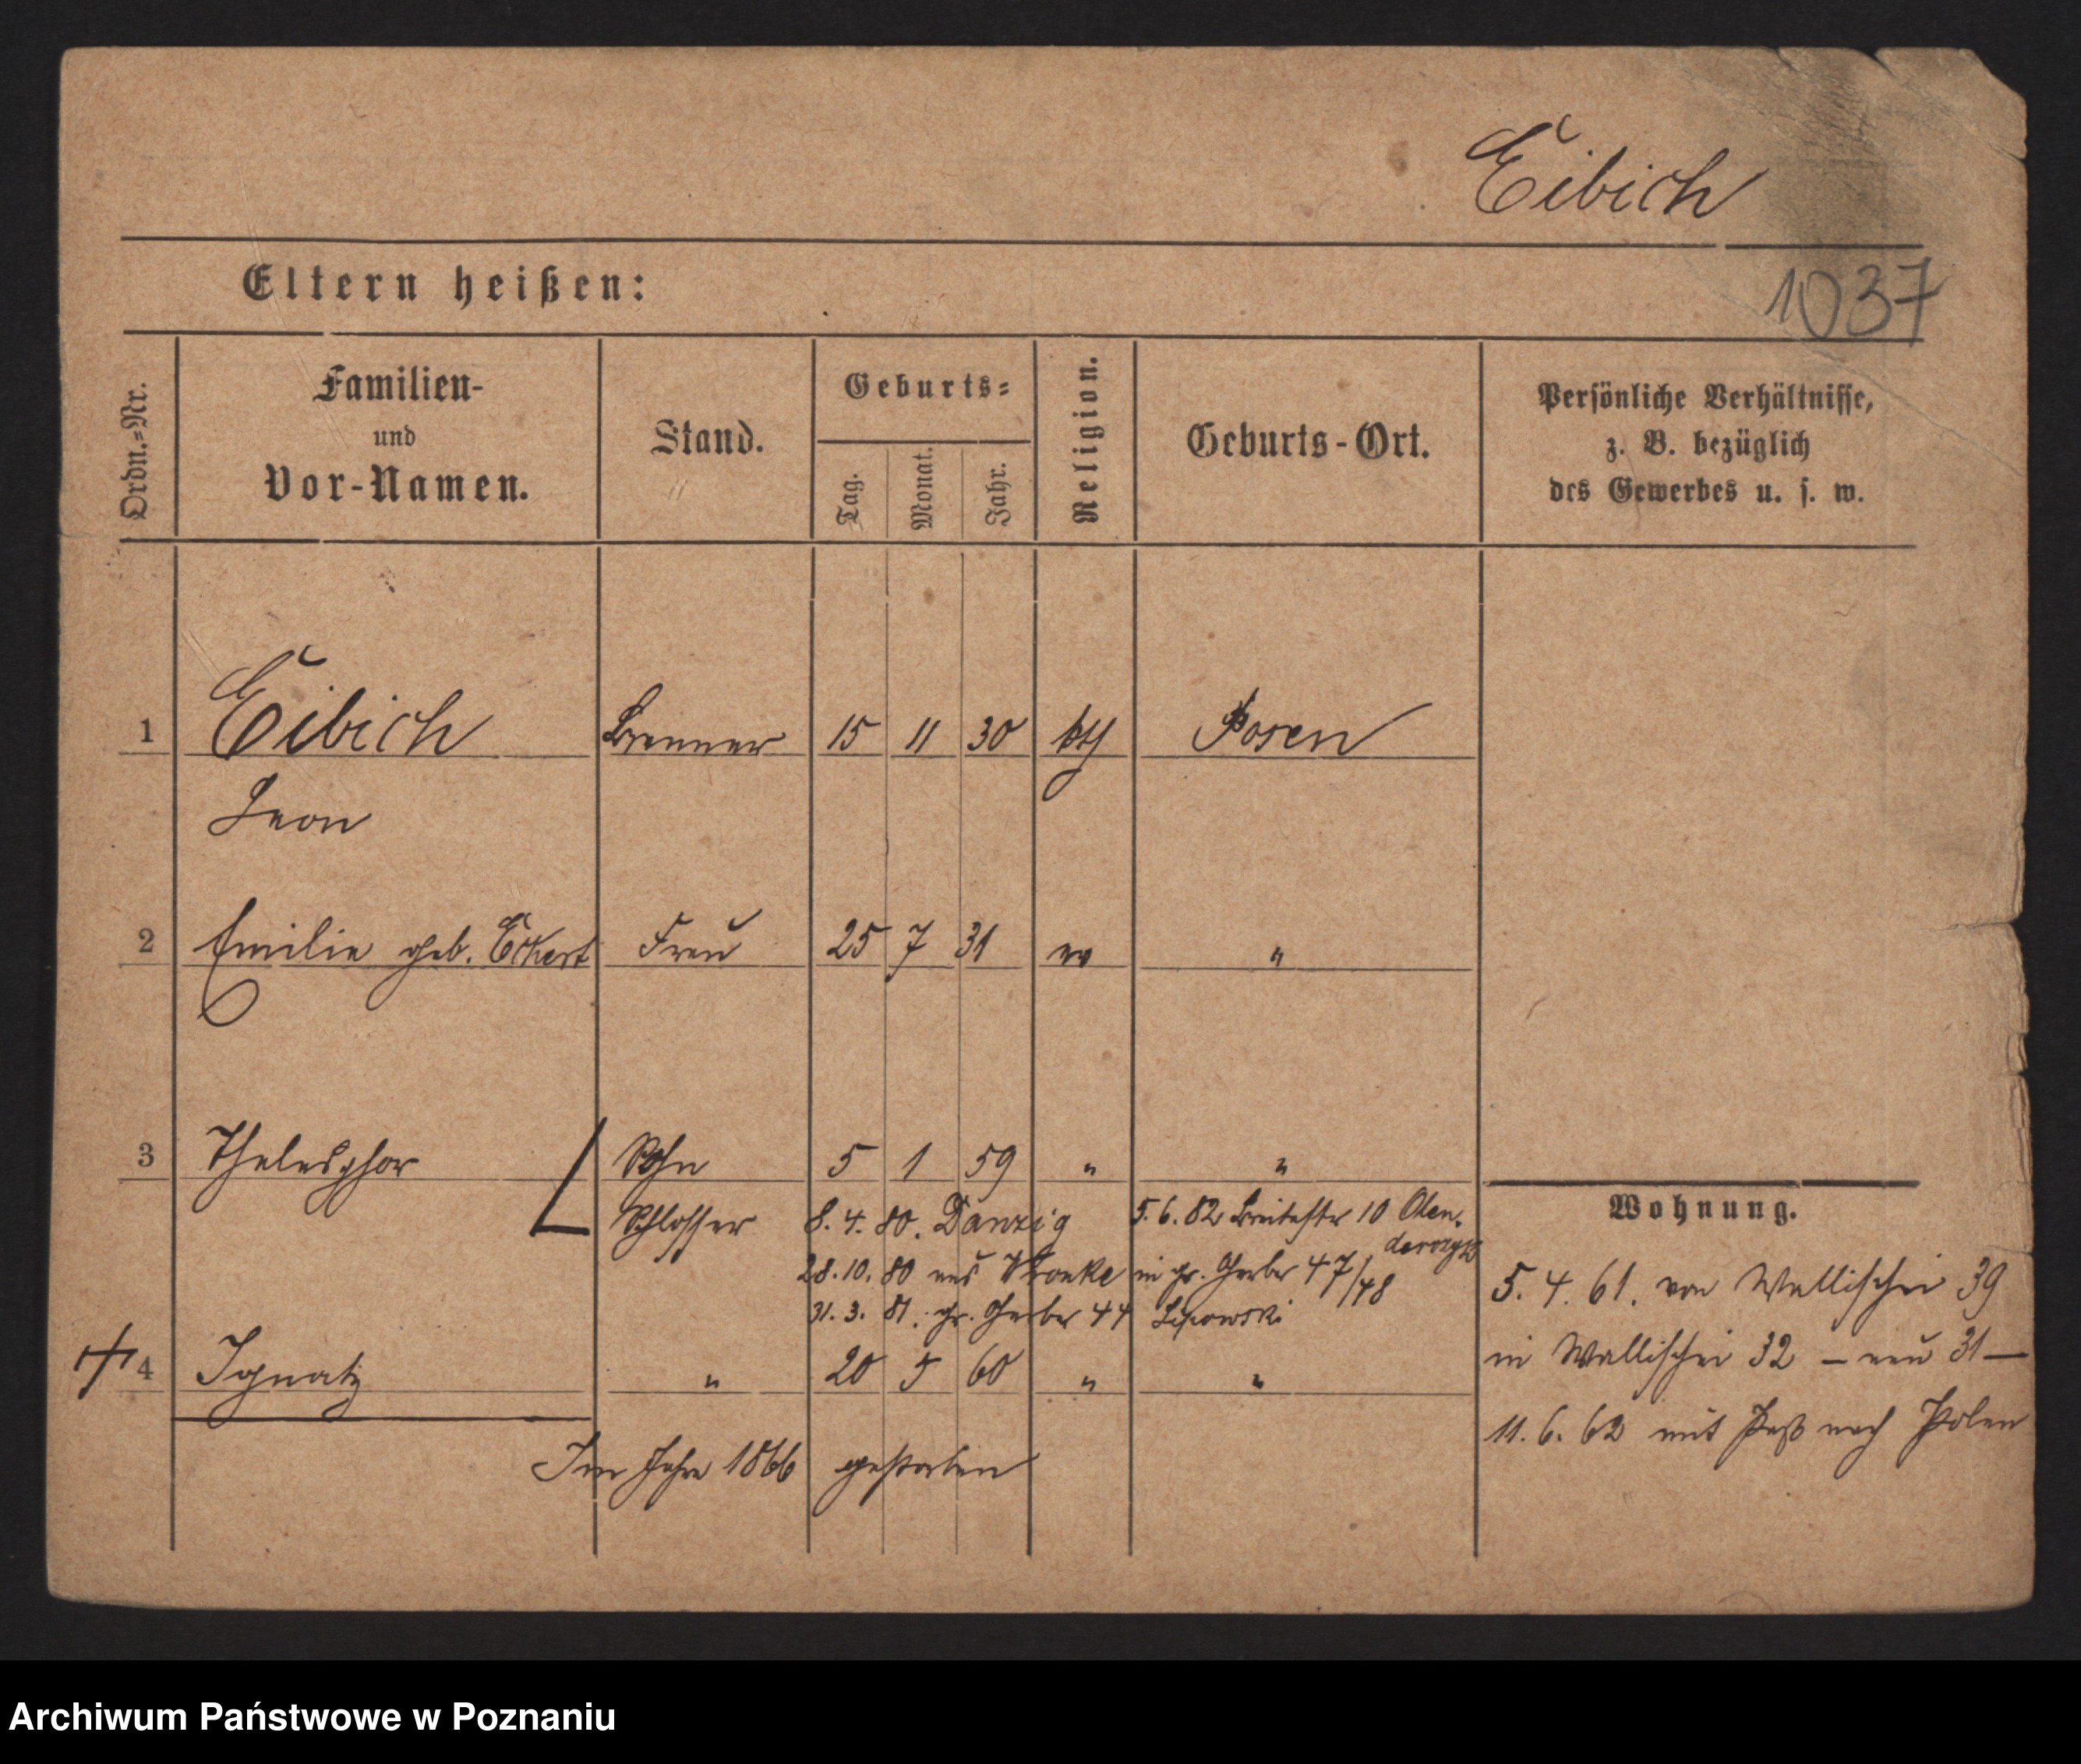 Eibich
Eltern heißen:
1037
Ordn.=Nr.
Familien-
und
Vor-Namen.
Stand.
Geburts=
Tag.
Monat.
Jahr.
Religion.
Geburts-Ort.
Persönliche Verhältnisse,
z. B. bezüglich
des Gewerbes u. s. w.
1 Eibich Brenner 15 11 30 kth Posen
Leon
2 Emilie geb. Eckert Frau 25 7 31 ev "
3 Thelesphor Sohn 5 1 59 " "
Schlosser 8. 4. 80. Danzig
28. 10. 80 aus Wronke
31. 3. 81. gr. Gerber 44
5. 6. 82 Breitestr 10
in gr. Gerber 47/48
Lipowski
4 Ignatz " 20 5 60 " "
Im Jahre 1866 gestorben
Wohnung.
5. 4. 61. von Wallischei 39
in Wallischei 32 – neu 31 –
11. 6. 62 mit Paß nach Polen
Archiwum Państwowe w Poznaniu